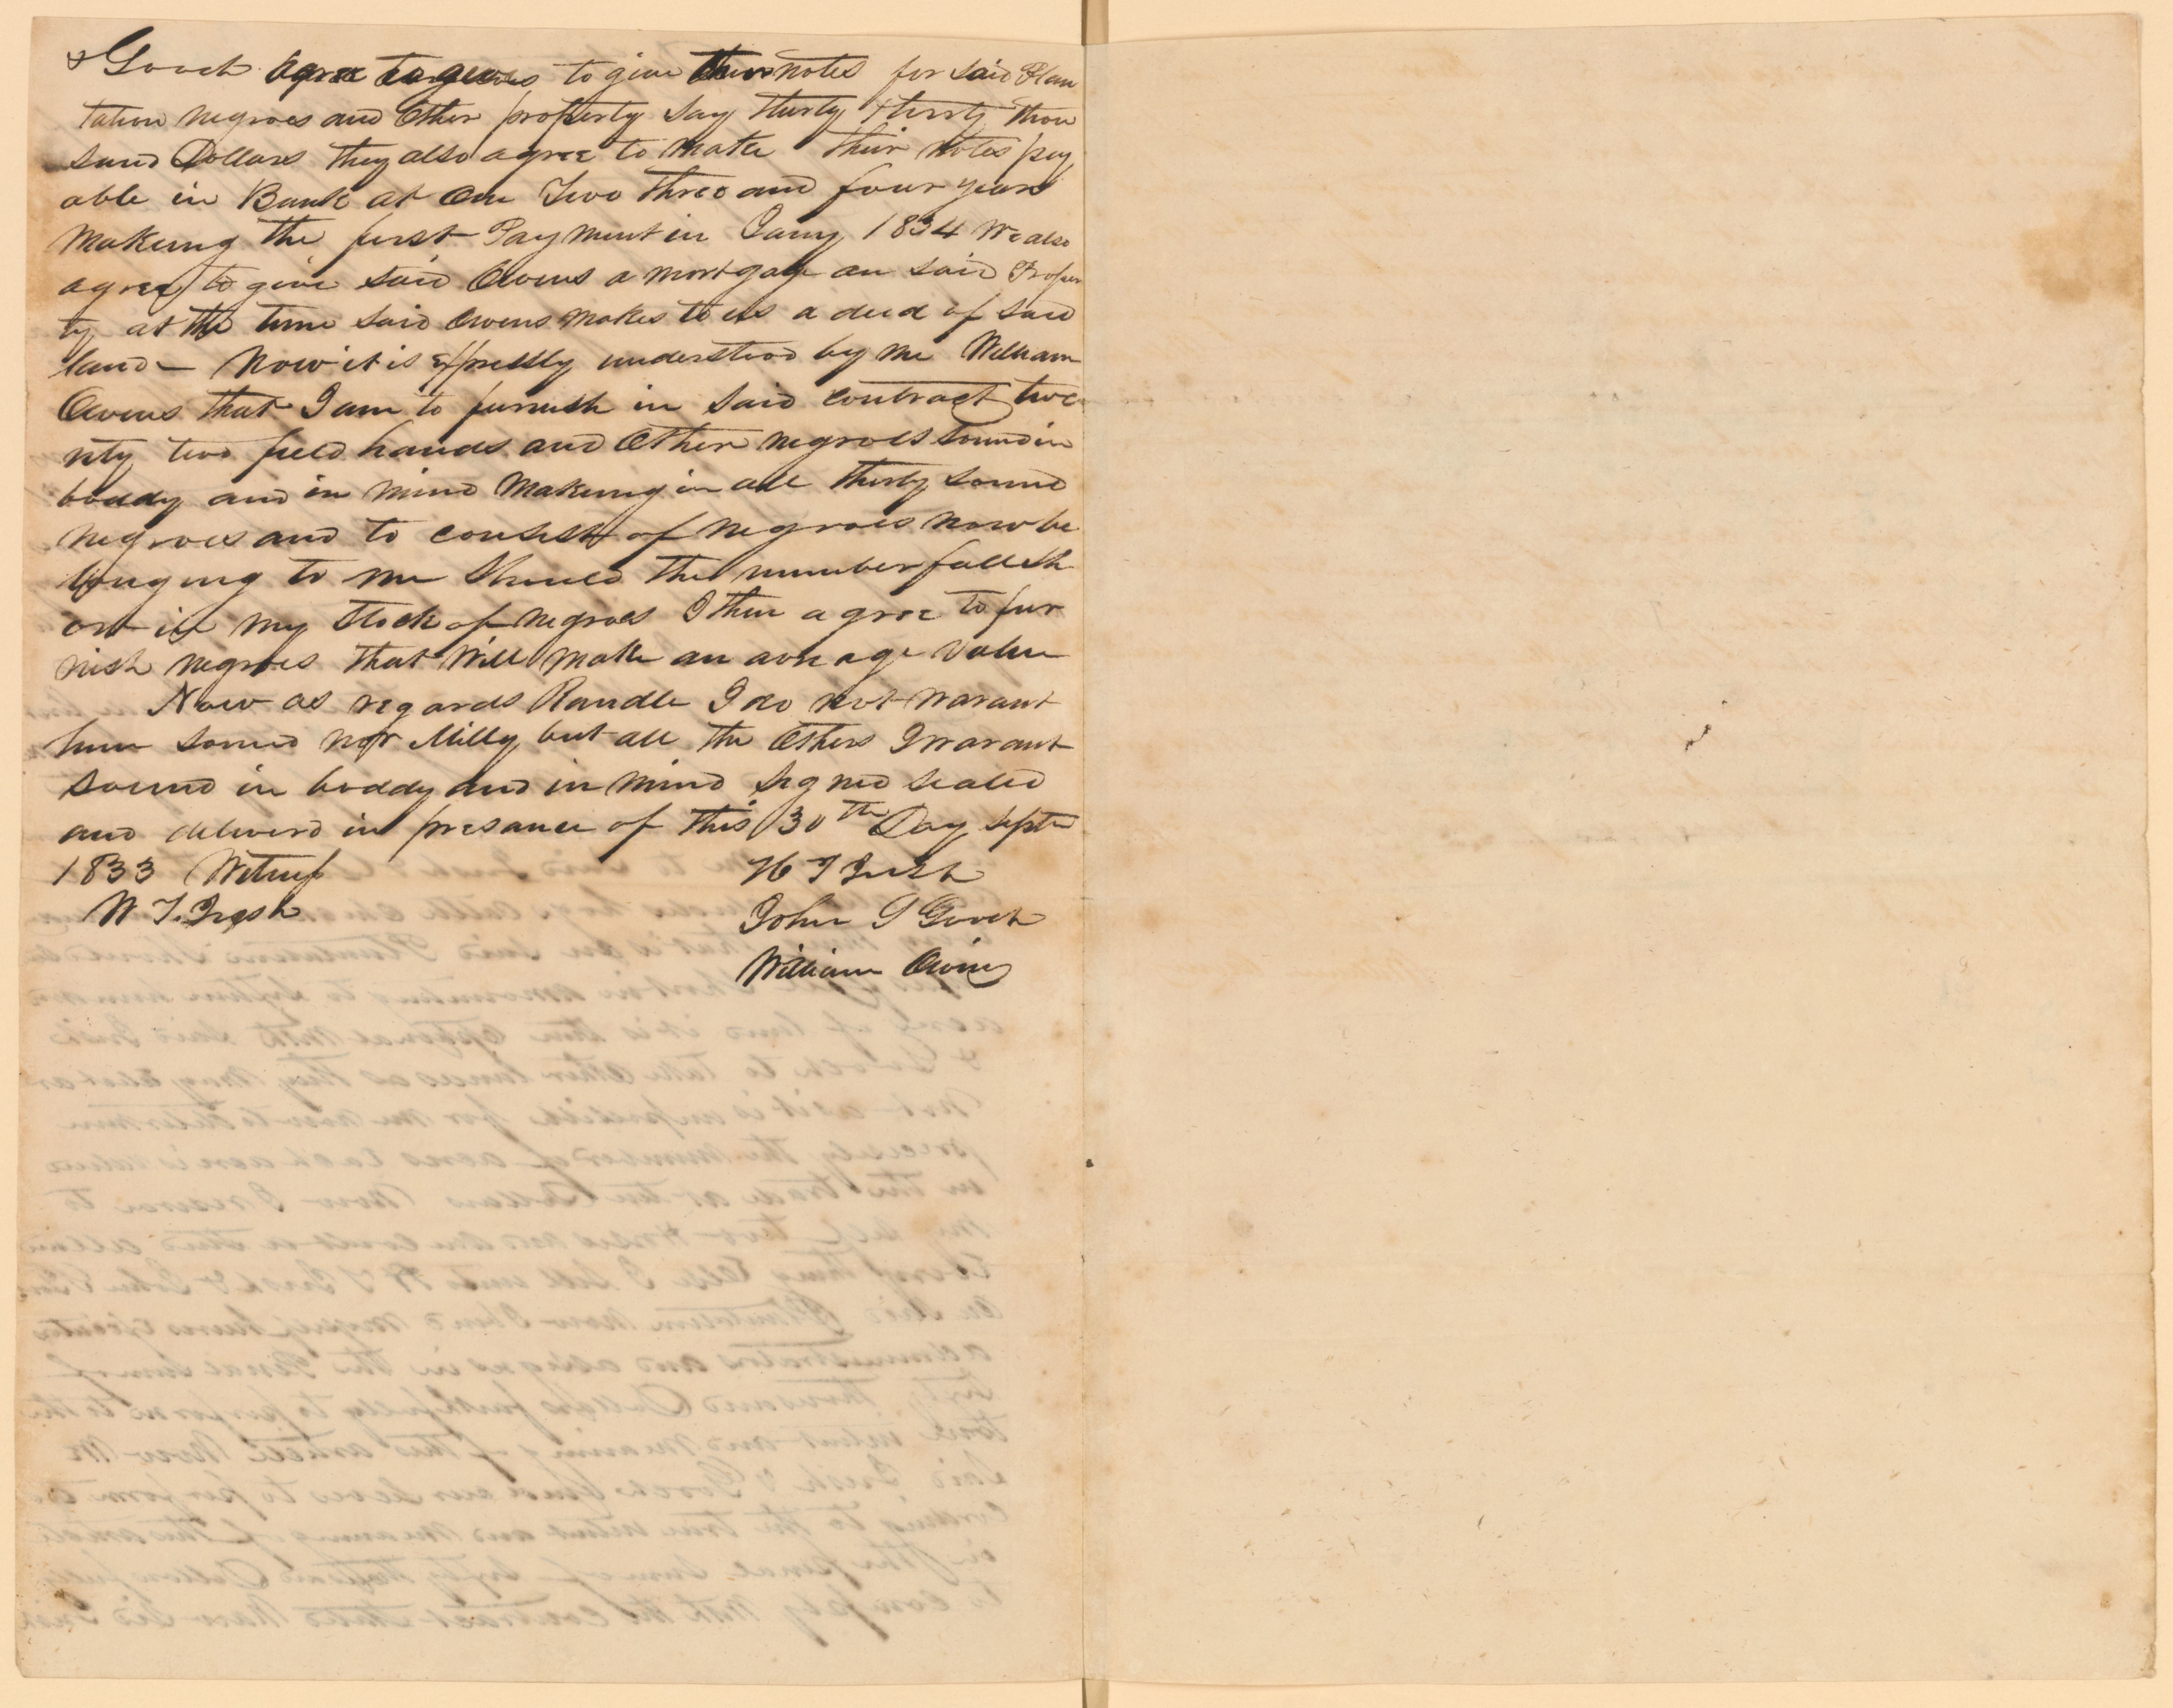 & Gooch agree to give to give their notes for said Plan
tation negroes and other property say thirty thirty thou
sand Dollars they also agree to make their notes pay
able in Bank at one Two three and four years
makeing the first Payment in Jany 1834 We also
agree to give said Owens a mortgage on said Proper
ty at the time said Owens makes to us a deed of said
land — Now it is expressly understood by me William
Owens that I am to furnish in said contract twe
nty two field hands and other negroes sound in
boddy and in mind makeing in all thirty sound
negroes and to consist of negroes now be
longing to me Should the number fall sh
ort in my stock of negroes I then agree to fur
nish negroes that will make an average value
Now as regards Randle I do not warant
him sound nor Milly but all the others I warant
sound in boddy and in mind signed sealed
and deliverd in presance of this 30th Day Septr
1833 Witness
H T Irish
W T. Irish
John G Gooch
William Owens